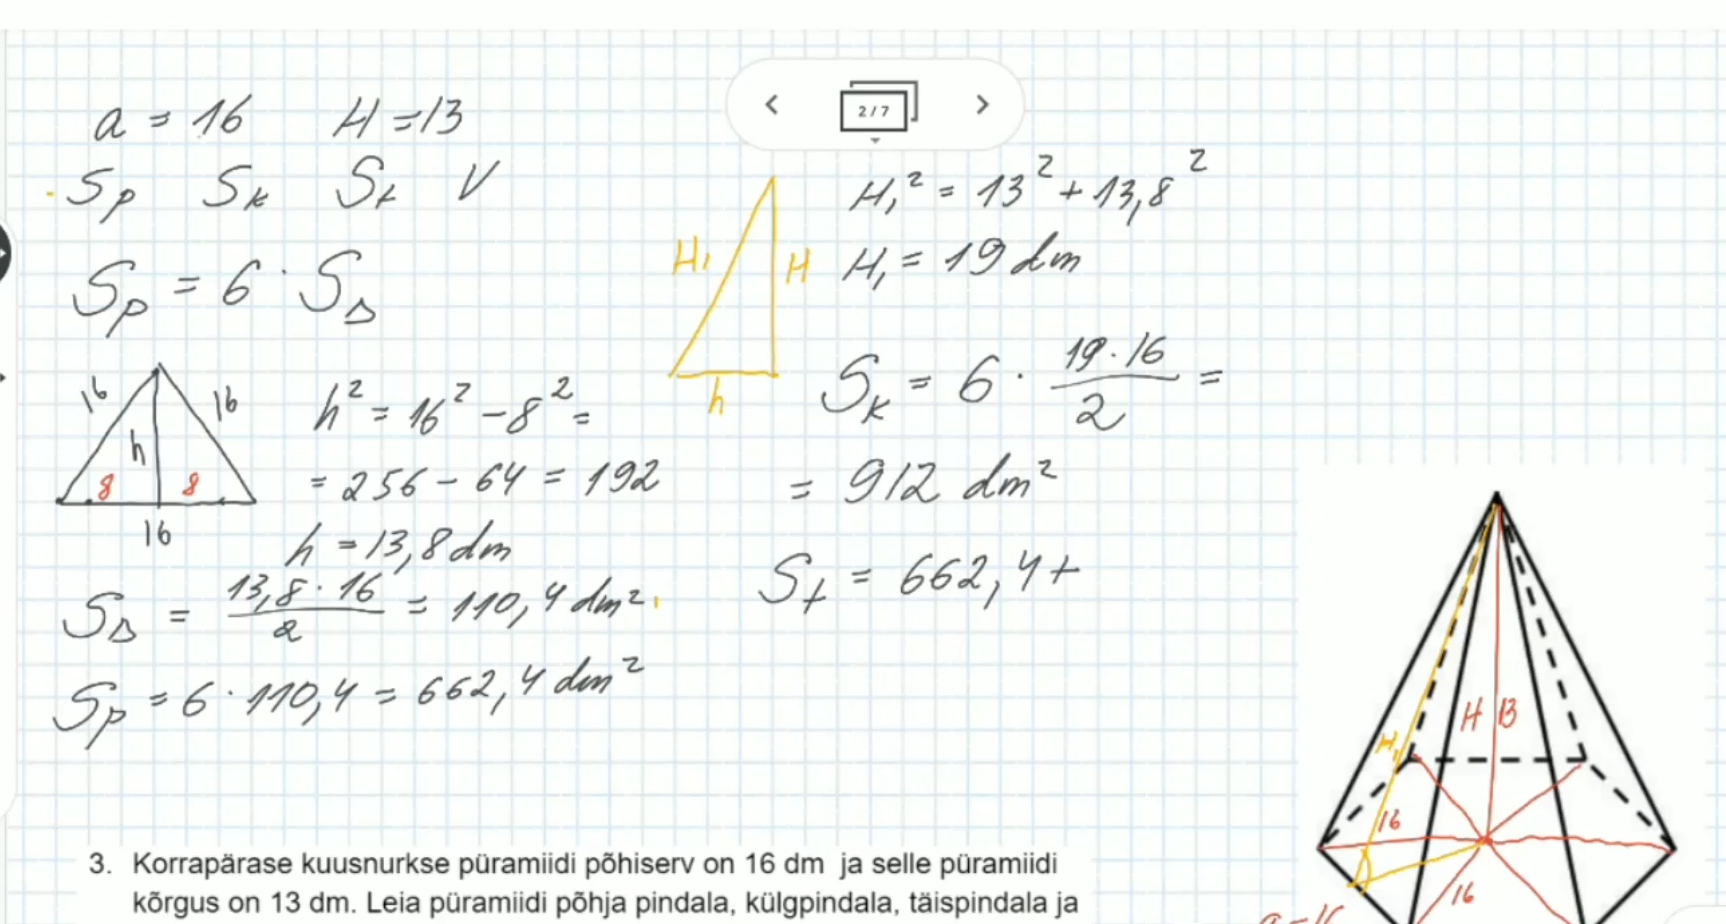 a = 16 H = 13
Sp Sk St V
Sp = 6 · S△
16 16
h
8 8
16
h² = 16² - 8² =
= 256 - 64 = 192
h = 13,8 dm
S△ = 13,8 · 16 / 2 = 110,4 dm²
Sp = 6 · 110,4 = 662,4 dm²
2 / 7
H₁ H
h
H₁² = 13² + 13,8²
H₁ = 19 dm
Sk = 6 · 19 · 16 / 2 =
= 912 dm²
St = 662,4 +
H 13
H₁
16
16
a = 16
3. Korrapärase kuusnurkse püramiidi põhiserv on 16 dm ja selle püramiidi
kõrgus on 13 dm. Leia püramiidi põhja pindala, külgpindala, täispindala ja